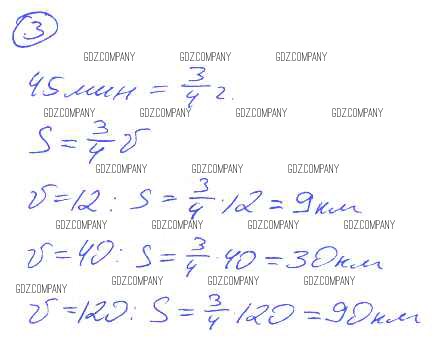 3
GDZ.COMPANY GDZ.COMPANY GDZ.COMPANY
45 мин = 3/4 г.
GDZ.COMPANY GDZ.COMPANY GDZ.COMPANY GDZ.COMPANY
S = 3/4 v
GDZ.COMPANY GDZ.COMPANY GDZ.COMPANY
v = 12: S = 3/4 · 12 = 9 км
GDZ.COMPANY GDZ.COMPANY GDZ.COMPANY GDZ.COMPANY
v = 40: S = 3/4 · 40 = 30 км
GDZ.COMPANY GDZ.COMPANY GDZ.COMPANY GDZ.COMPANY
v = 120: S = 3/4 · 120 = 90 км